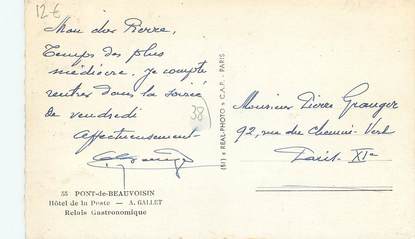 12€
Mon cher Pierre,
Temps des plus
médiocre. Je compte
rentrer dans la soirée
de vendredi
Affectueusement
38
(M) REAL-PHOTO C.A.P. - PARIS
Monsieur Pierre Granger
92, rue du Chemin-Vert
Paris XIe
38 PONT-de-BEAUVOISIN
Hôtel de la Poste — A. GALLET
Relais Gastronomique